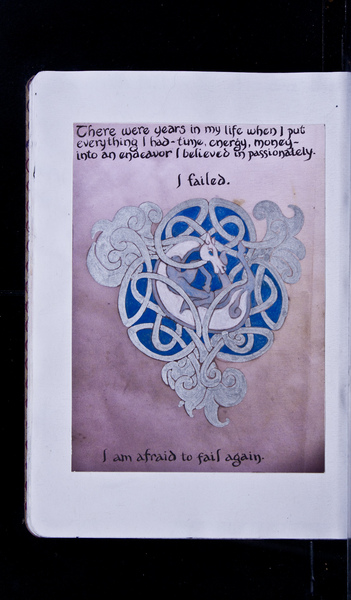 There were years in my life when I put
everything I had-time, energy, money-
into an endeavor I believed in passionately.
I failed.
I am afraid to fail again.